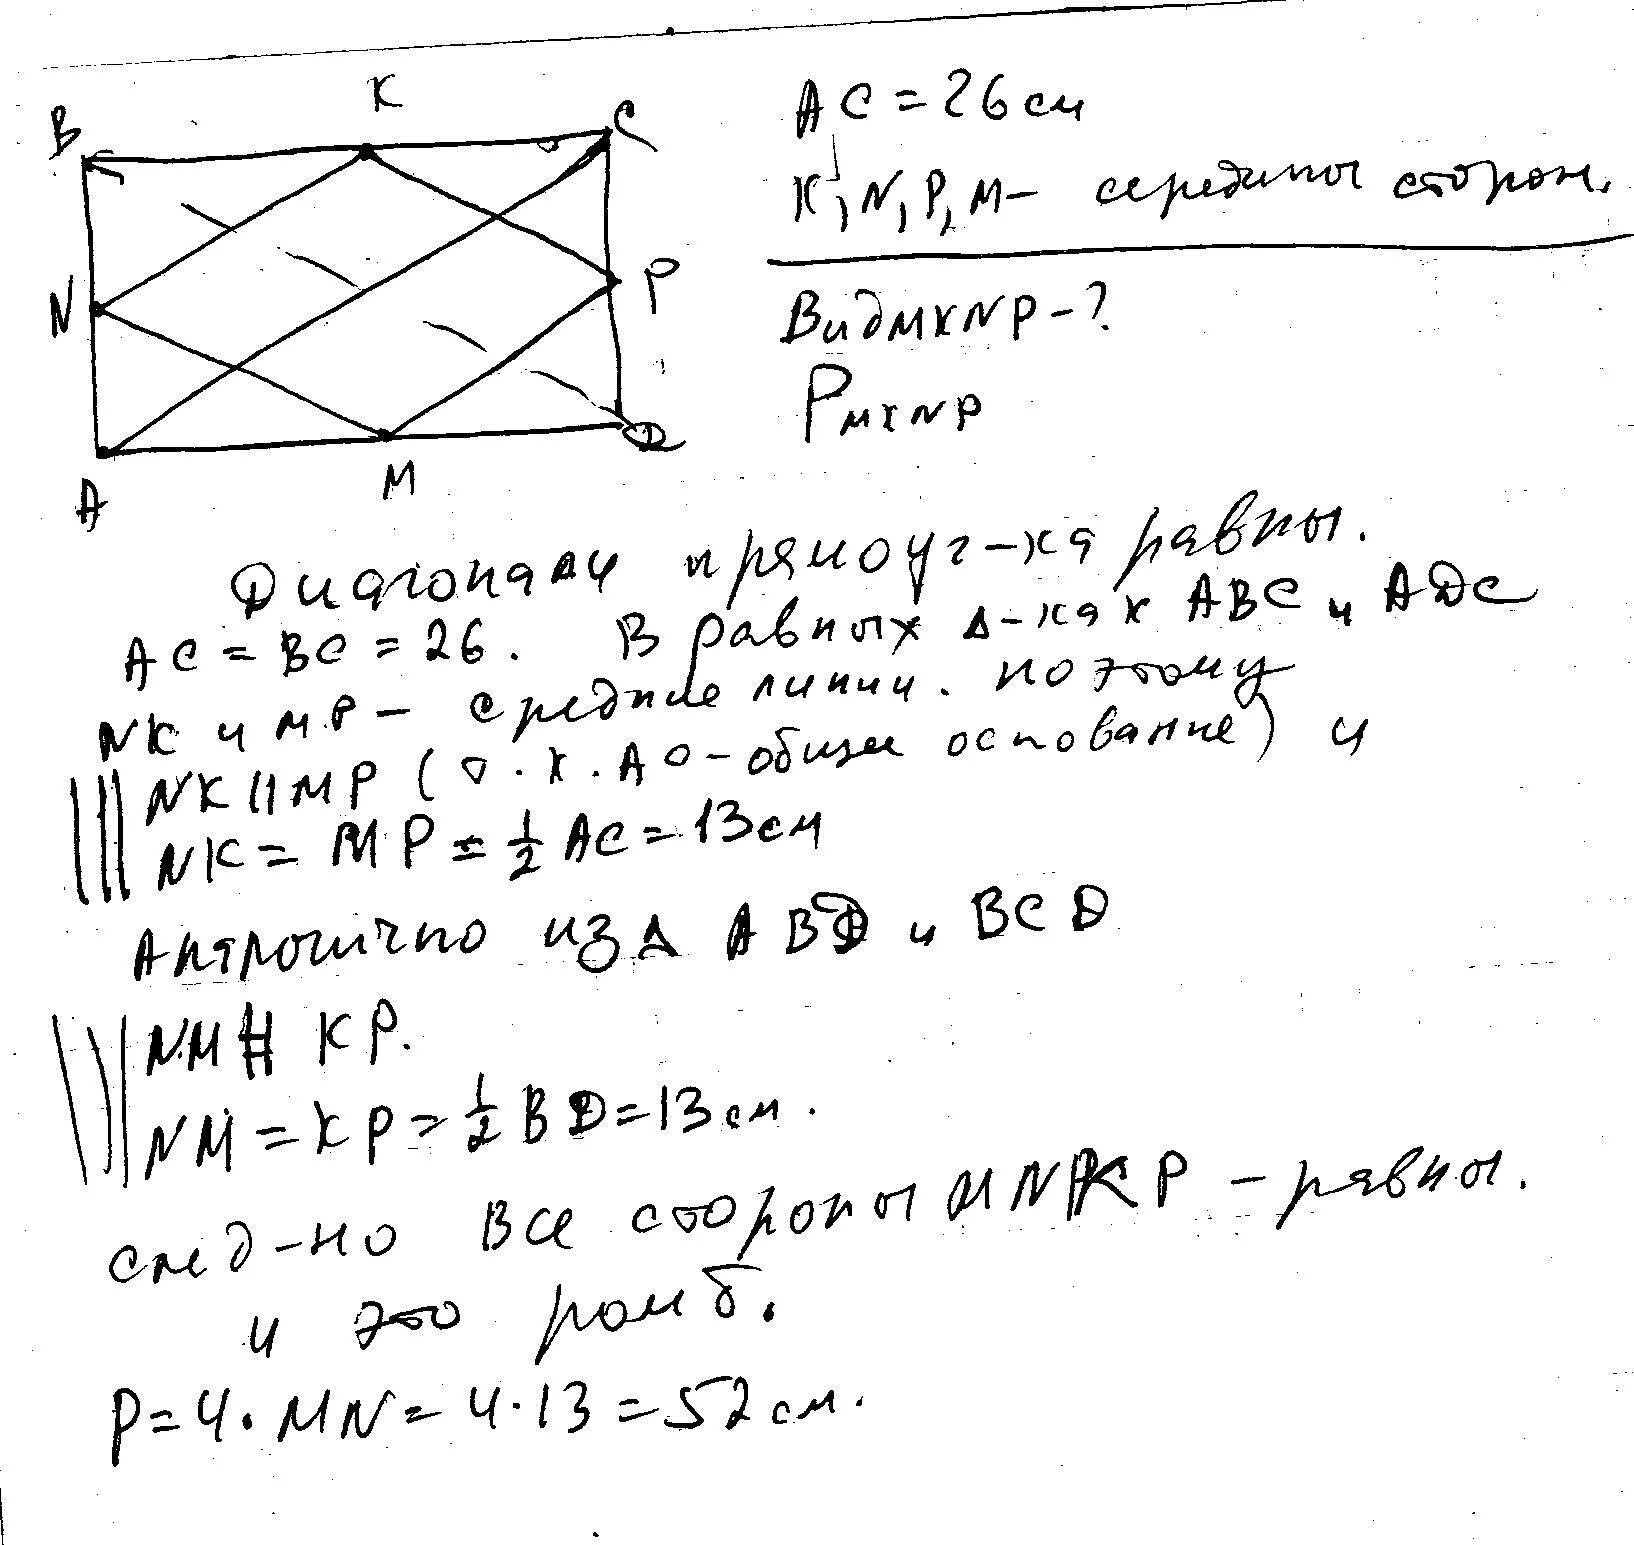 B K C
N P
A M D
AC = 26 см
K, N, P, M – середины сторон.
Вид MKNP – ?
P MKNP
Диагонали прямоуг-ка равны.
AC = BC = 26. В равных Δ-ках ABC и ADC
NK и MP – средние линии. поэтому
NK || MP (т.к. AC – общее основание) и
NK = MP = 1/2 AC = 13 см
Аналогично из Δ ABD и BCD
NM || KP.
NM = KP = 1/2 BD = 13 см.
след-но все стороны MNKP – равны.
и это ромб.
P = 4 · MN = 4 · 13 = 52 см.